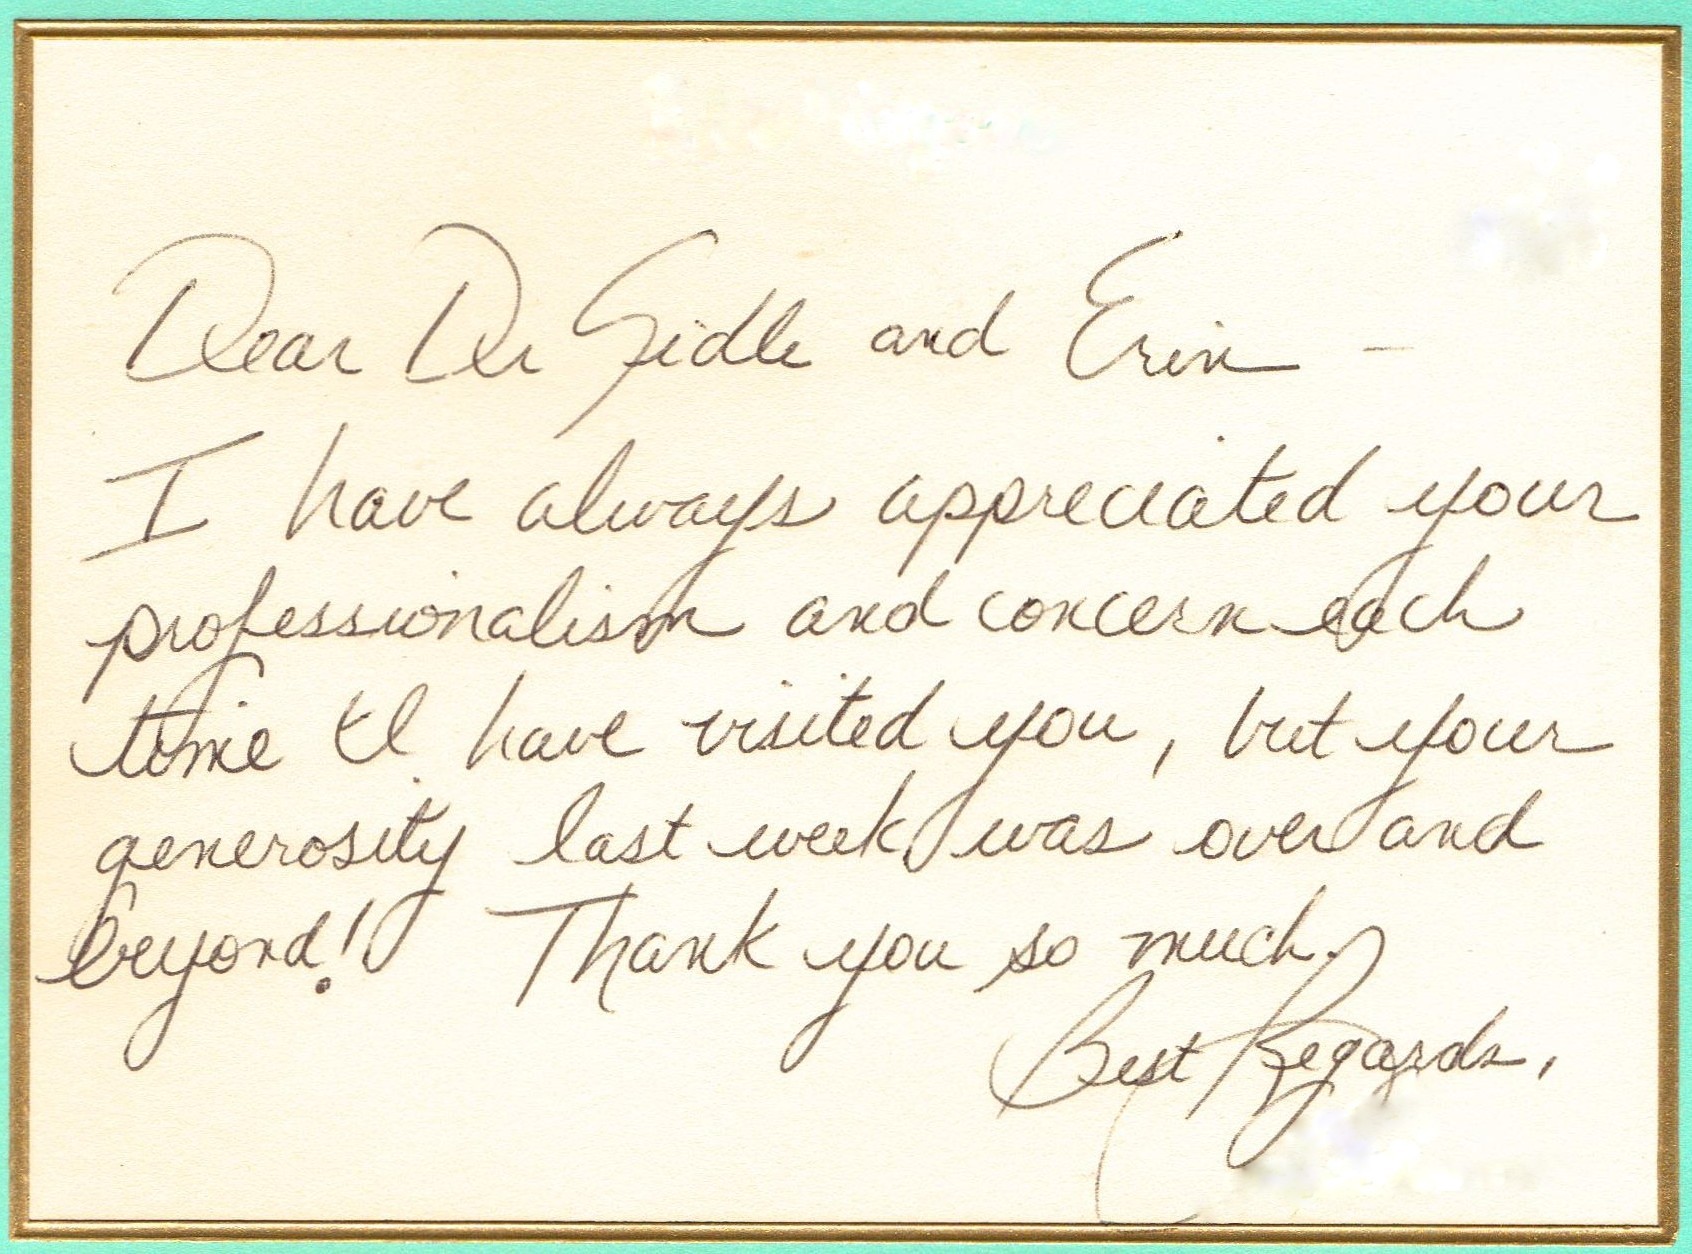 Dear Dr Sidle and Erin –
I have always appreciated your
professionalism and concern each
time I have visited you, but your
generosity last week was over and
beyond! Thank you so much.
Best Regards,